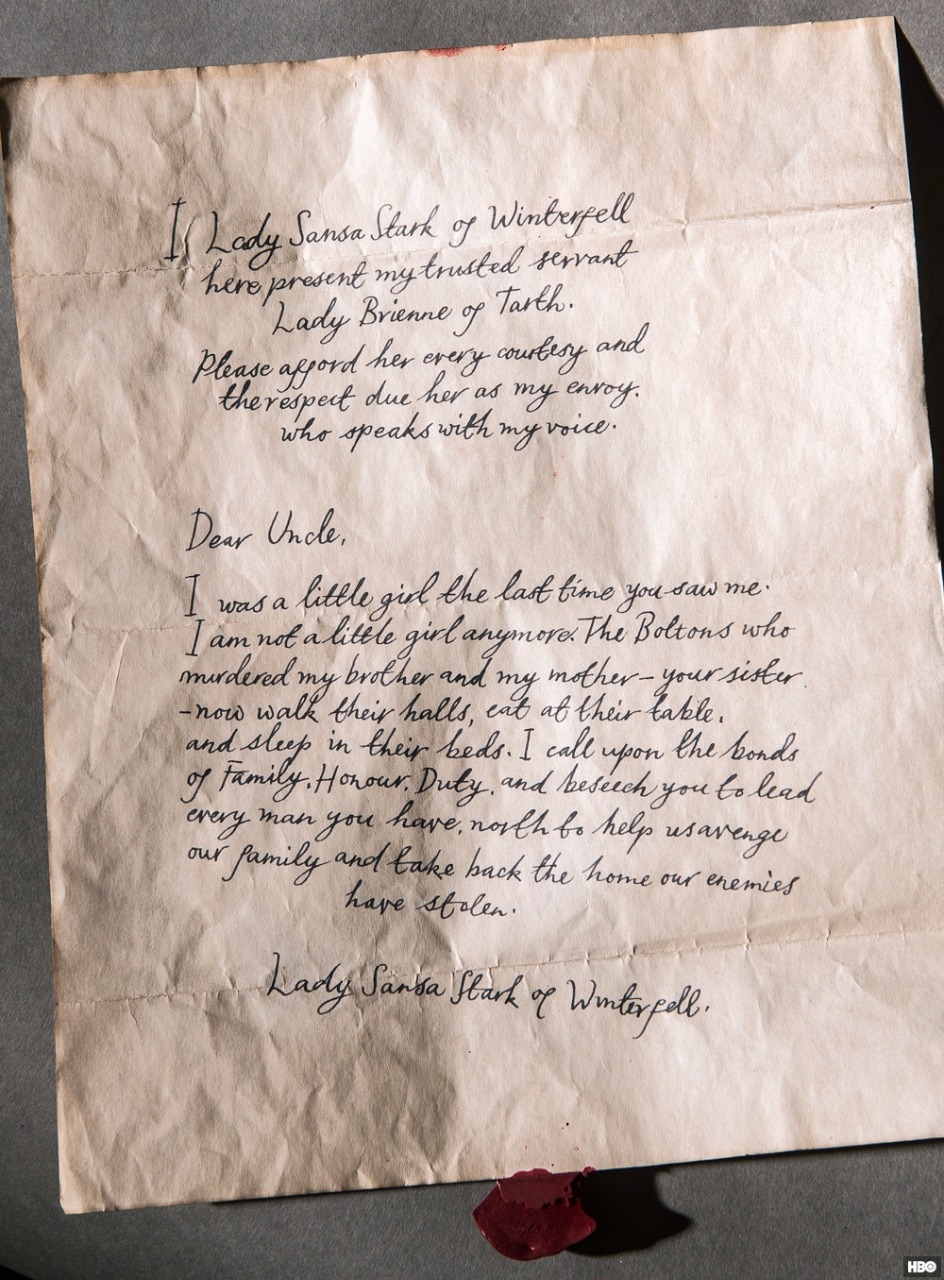 I, Lady Sansa Stark of Winterfell
here present my trusted servant
Lady Brienne of Tarth.
Please afford her every courtesy and
the respect due her as my envoy.
who speaks with my voice.
Dear Uncle,
I was a little girl the last time you saw me.
I am not a little girl anymore. The Boltons who
murdered my brother and my mother – your sister
– now walk their halls, eat at their table,
and sleep in their beds. I call upon the bonds
of Family, Honour, Duty, and beseech you to lead
every man you have, north to help us avenge
our family and take back the home our enemies
have stolen.
Lady Sansa Stark of Winterfell.
HBO